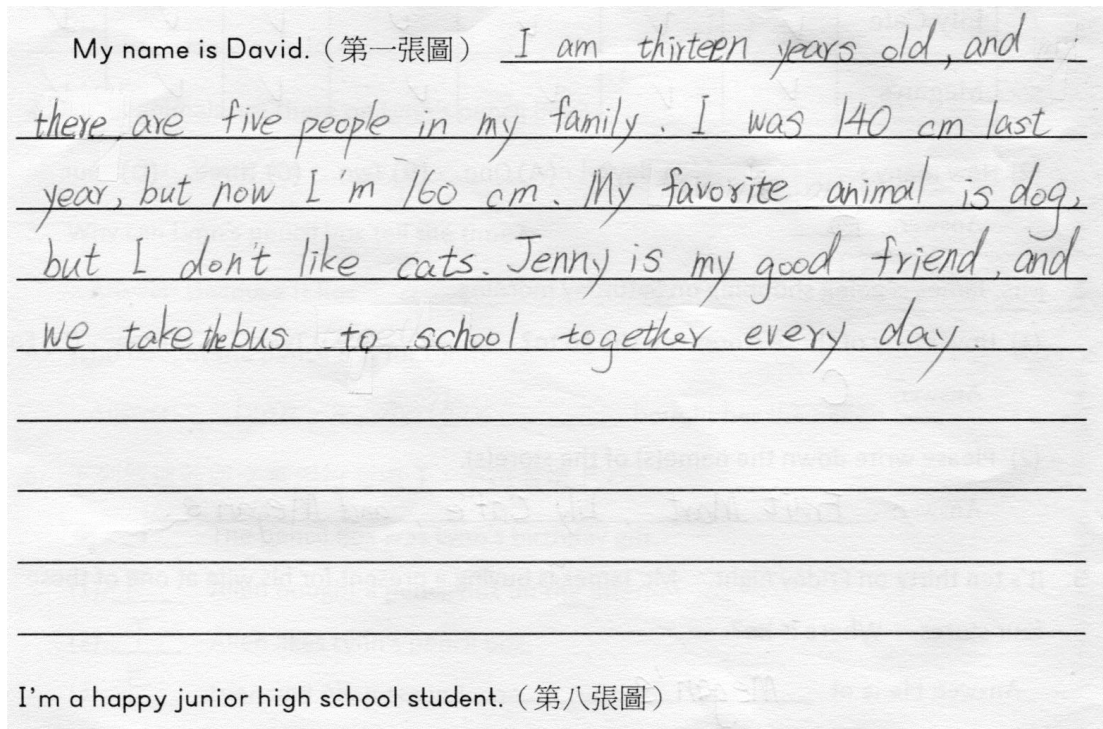 My name is David.（第一張圖） I am thirteen years old, and
there are five people in my family. I was 140 cm last
year, but now I m 160 cm. My favorite animal is dog,
but I don't like cats. Jenny is my good friend, and
we take the bus to school together every day.
I'm a happy junior high school student.（第八張圖）